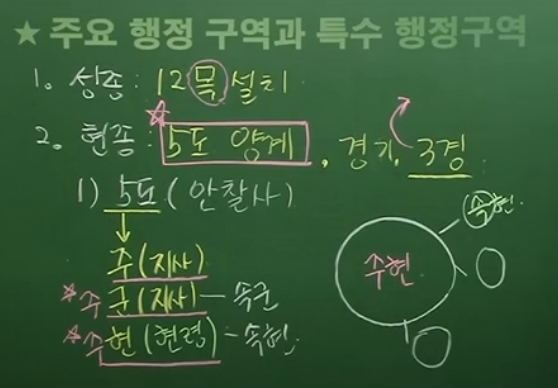 ★ 주요 행정 구역과 특수 행정구역
1. 성종: 12목 설치
2. 현종: 5도 양계, 경기, 3경
1) 5도 (안찰사)
주(지사)
*주군(지사) - 속군
*주현(현령) - 속현
주현
속현